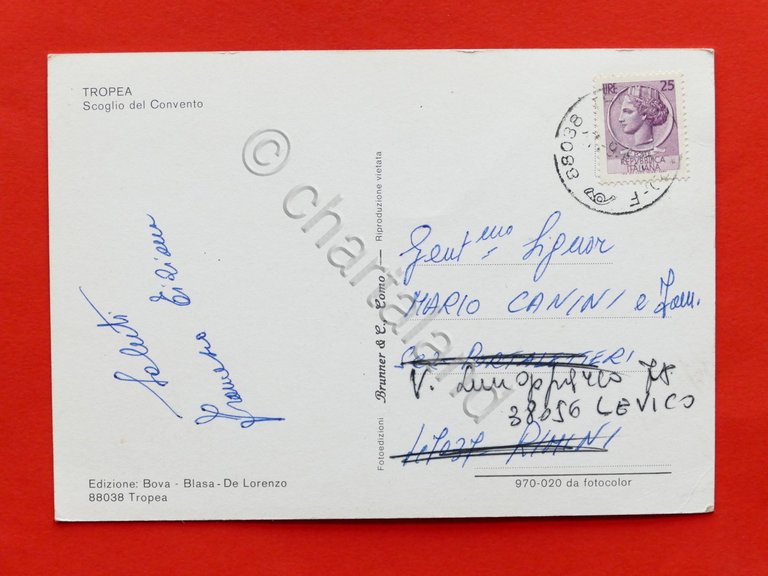 TROPEA
Scoglio del Convento
Saluti
Tiziana
Francesco
Edizione: Bova - Blasa - De Lorenzo
88038 Tropea
Fotoedizioni Brunner & C., Como — Riproduzione vietata
LIRE 25
REPUBBLICA
ITALIANA
88038
Gent.mo Signor
MARIO CANINI e Fam.
RIMINI
38056 LEVICO
970-020 da fotocolor
© chartaland